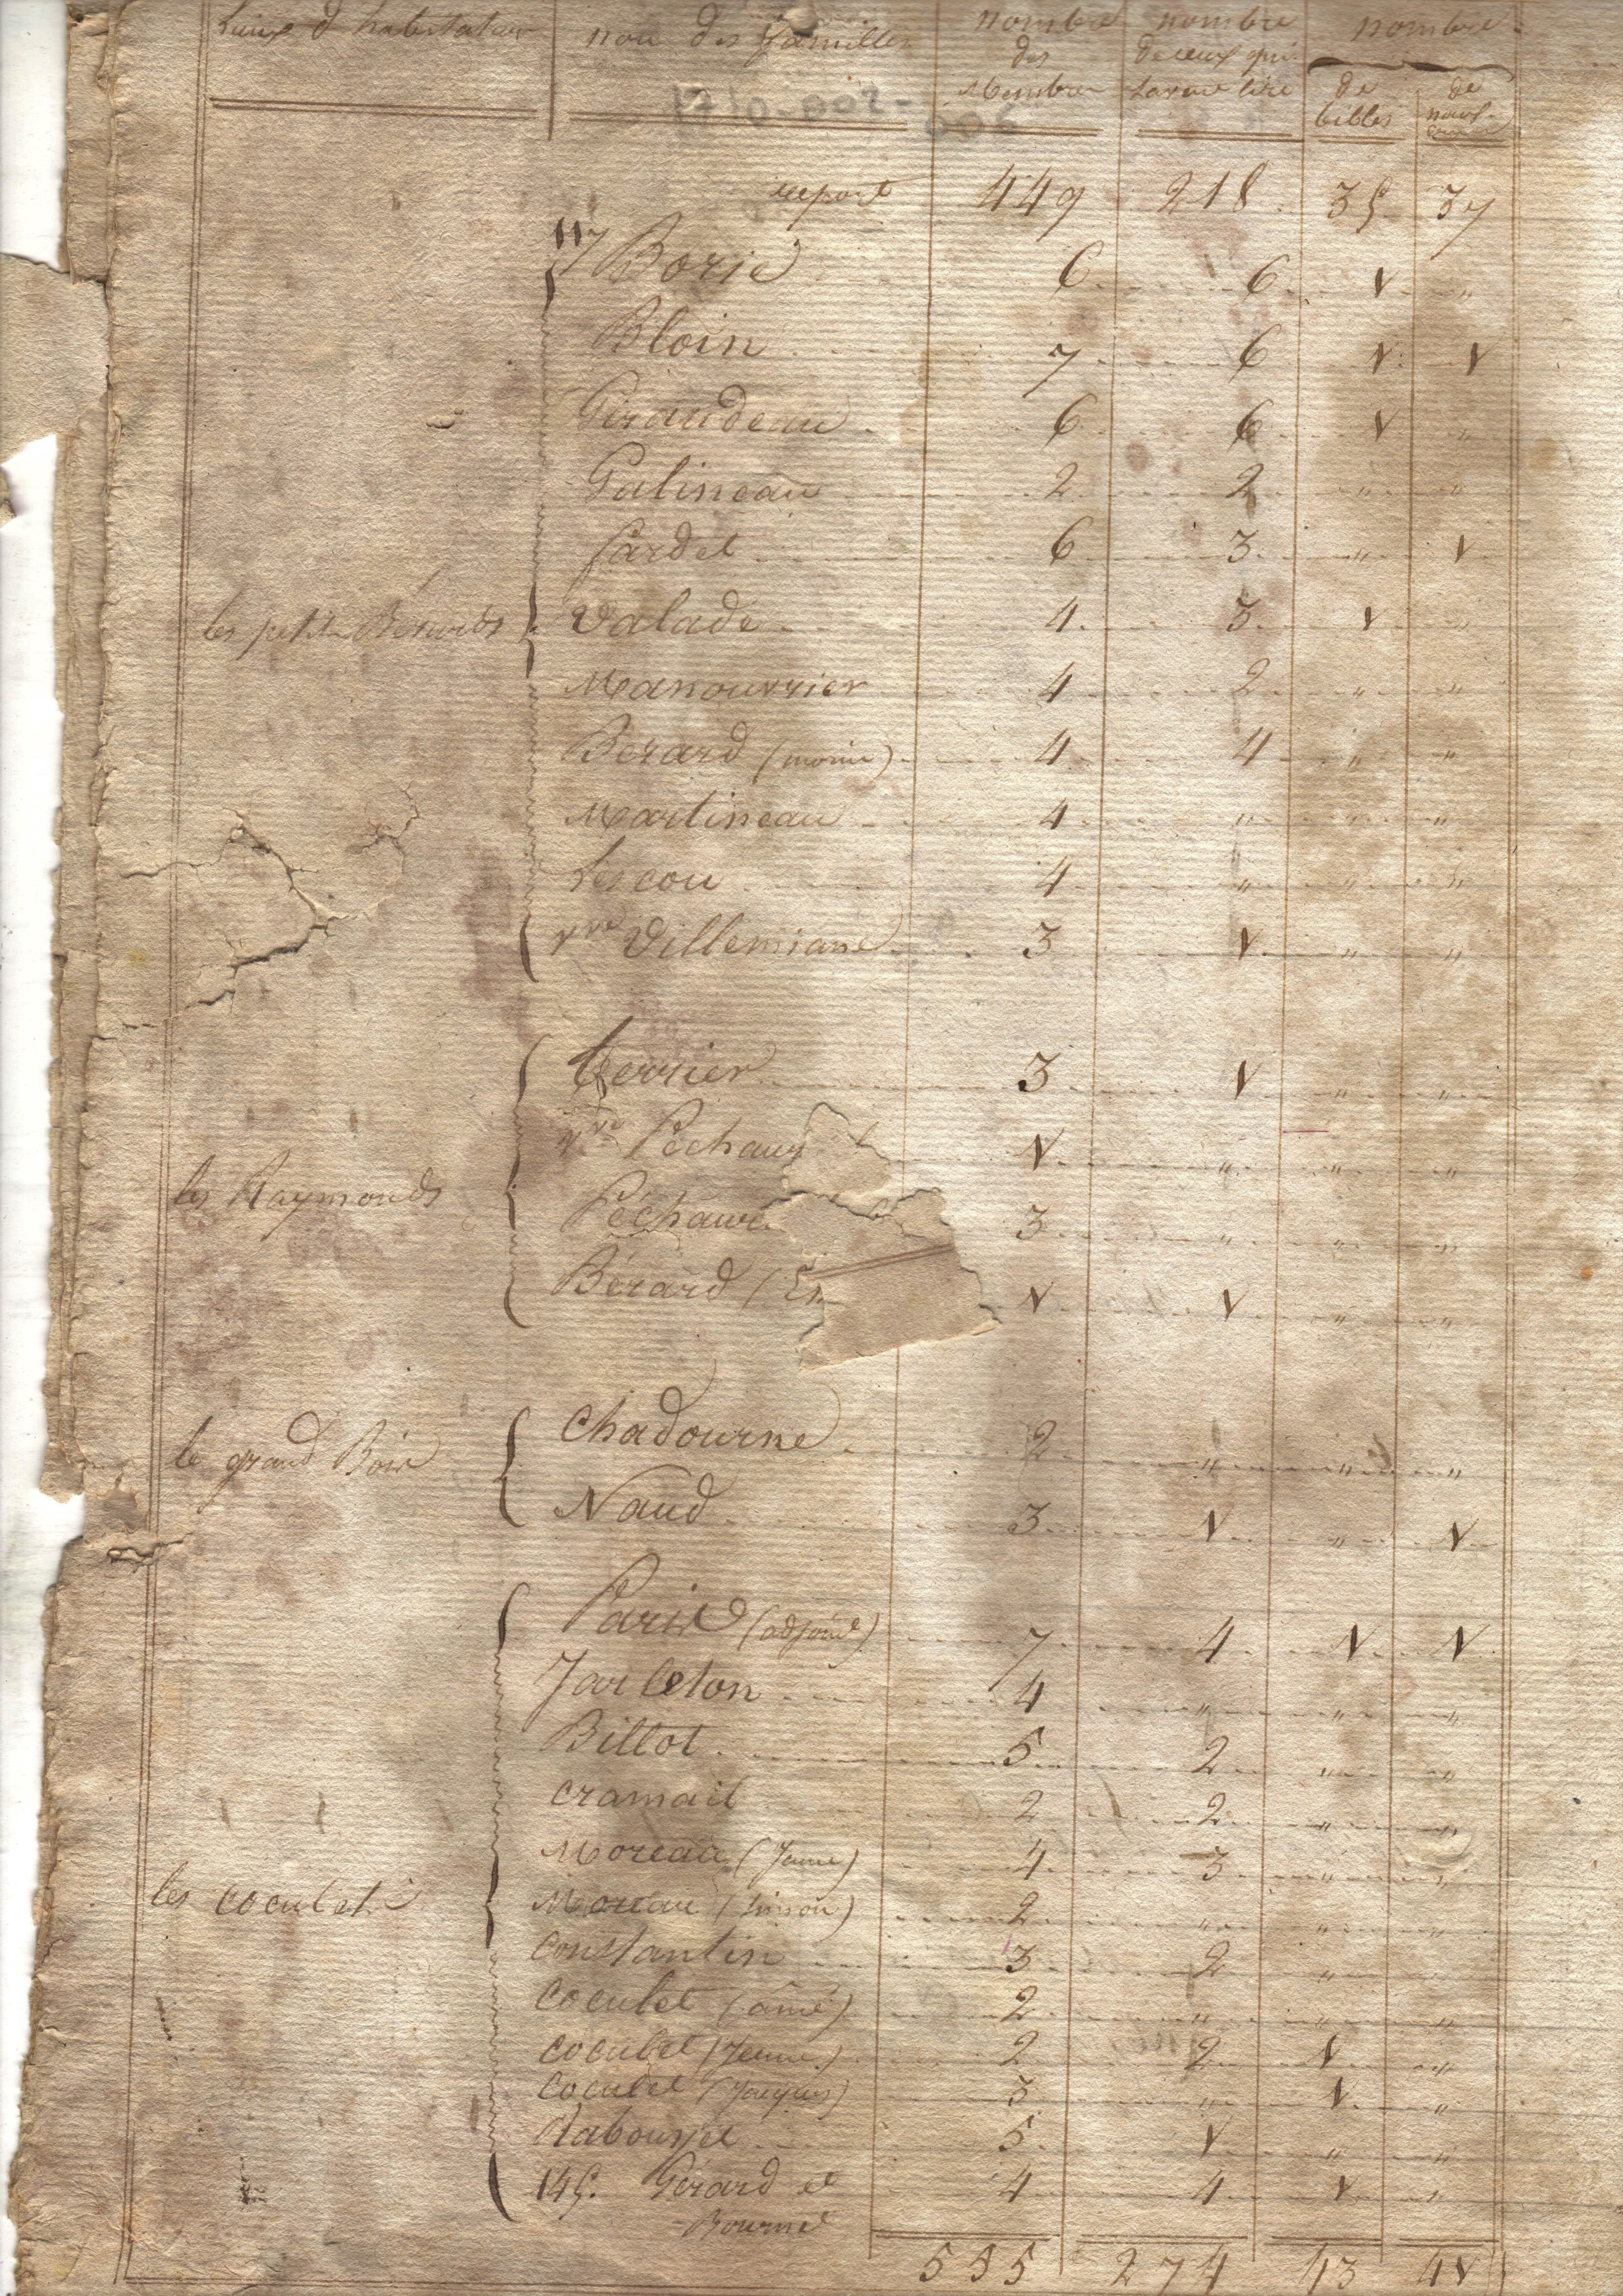 Lieux d'habitation nom des familles nombre des Membres nombre de ceux qui savent lire nombre de bibles de nouv.
report 449 218 35 37
117 Borie 6 6 1 "
Bloin 7 6 1 1
Giraudeau 6 6 1 "
Galineau 2 2 " "
Jardel 6 3 " 1
les petits Bérards Valade 4 3 1 "
Manouvrier 4 2 " "
Bérard (moriu) 4 4 " "
Martineau 4 " " "
Lescou 4 " " "
vve Villemiane 3 1 " "
Terrier 3 1 " "
vve Péchau 1 " " "
les Raymonds Péchau 3 " " "
Bérard ( 1 1 " "
le grand Bois Chadourne 2 " " "
Naud 3 1 " 1
Paris (adjoint) 7 4 1 1
Jarleton 4 " " "
Billot 5 2 " "
Cramail 2 2 " "
Moreau (Jeune) 4 3 " "
les Coculets Moreau (Simon) 2 " " "
Constantin 3 2 " "
Coculet (ainé) 2 " " "
Coculet (Jeune) 2 2 1 "
Coculet (Jacques) 3 " 1 "
Rabouyse 5 1 " "
145. Gérard et 4 4 1 "
Bourne
555 274 43 41